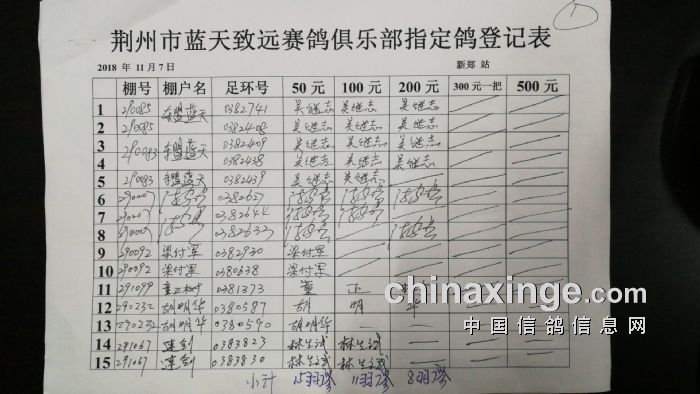 1
荆州市蓝天致远赛鸽俱乐部指定鸽登记表
2018 年 11 月 7 日 新郑 站
棚号 棚户名 足环号 50 元 100 元 200 元 300 元一把 500 元
1 290085 东盟蓝天 0382741 吴继志 吴继志 吴继志
2 290085 0382408 吴继志 吴继志
3 290083 东盟蓝天 0382409 吴继志 吴继志 吴继志
4 0382438 吴继志 吴继志 吴继志
5 290083 东盟蓝天 0382439 吴继志 吴继志
6 0382627
7 0382644
8 0382632
9 290092 梁付军 0382930 梁付军
10 290092 梁付军 0380638 梁付军
11 291099 0381373 董 正
12 290232 胡明华 0380587 胡 明 华
13 290232 胡明华 0380590 胡明华
14 291067 莲剑 0383823 林生斌 林生斌
15 291067 莲剑 0383830 林生斌 林生斌
小计 15羽 11羽 8羽
chinaxinge.com
中国信鸽信息网